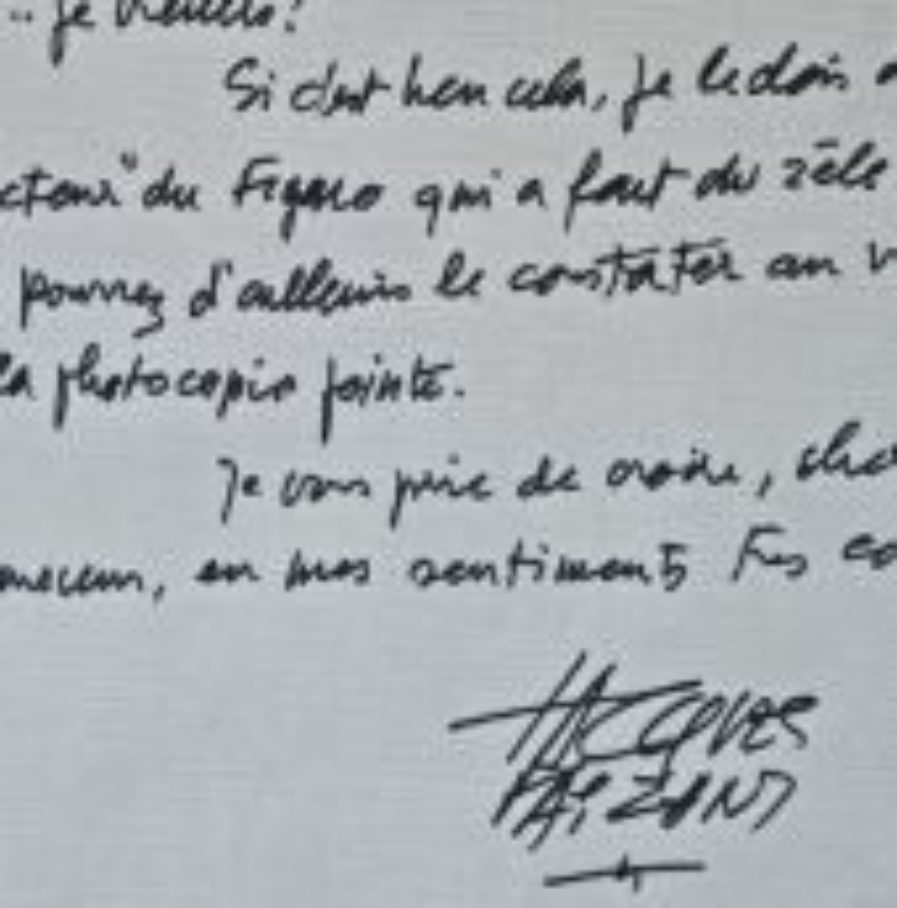 .. je
Si c'est bien cela, je le dois a
cteur" du Figaro qui a fait du zèle
pourrez d'ailleurs le constater au v
la photocopie jointe.
Je vous prie de croire, che
monsieur, en mes sentiments très co
JACQUES
FAIZANT